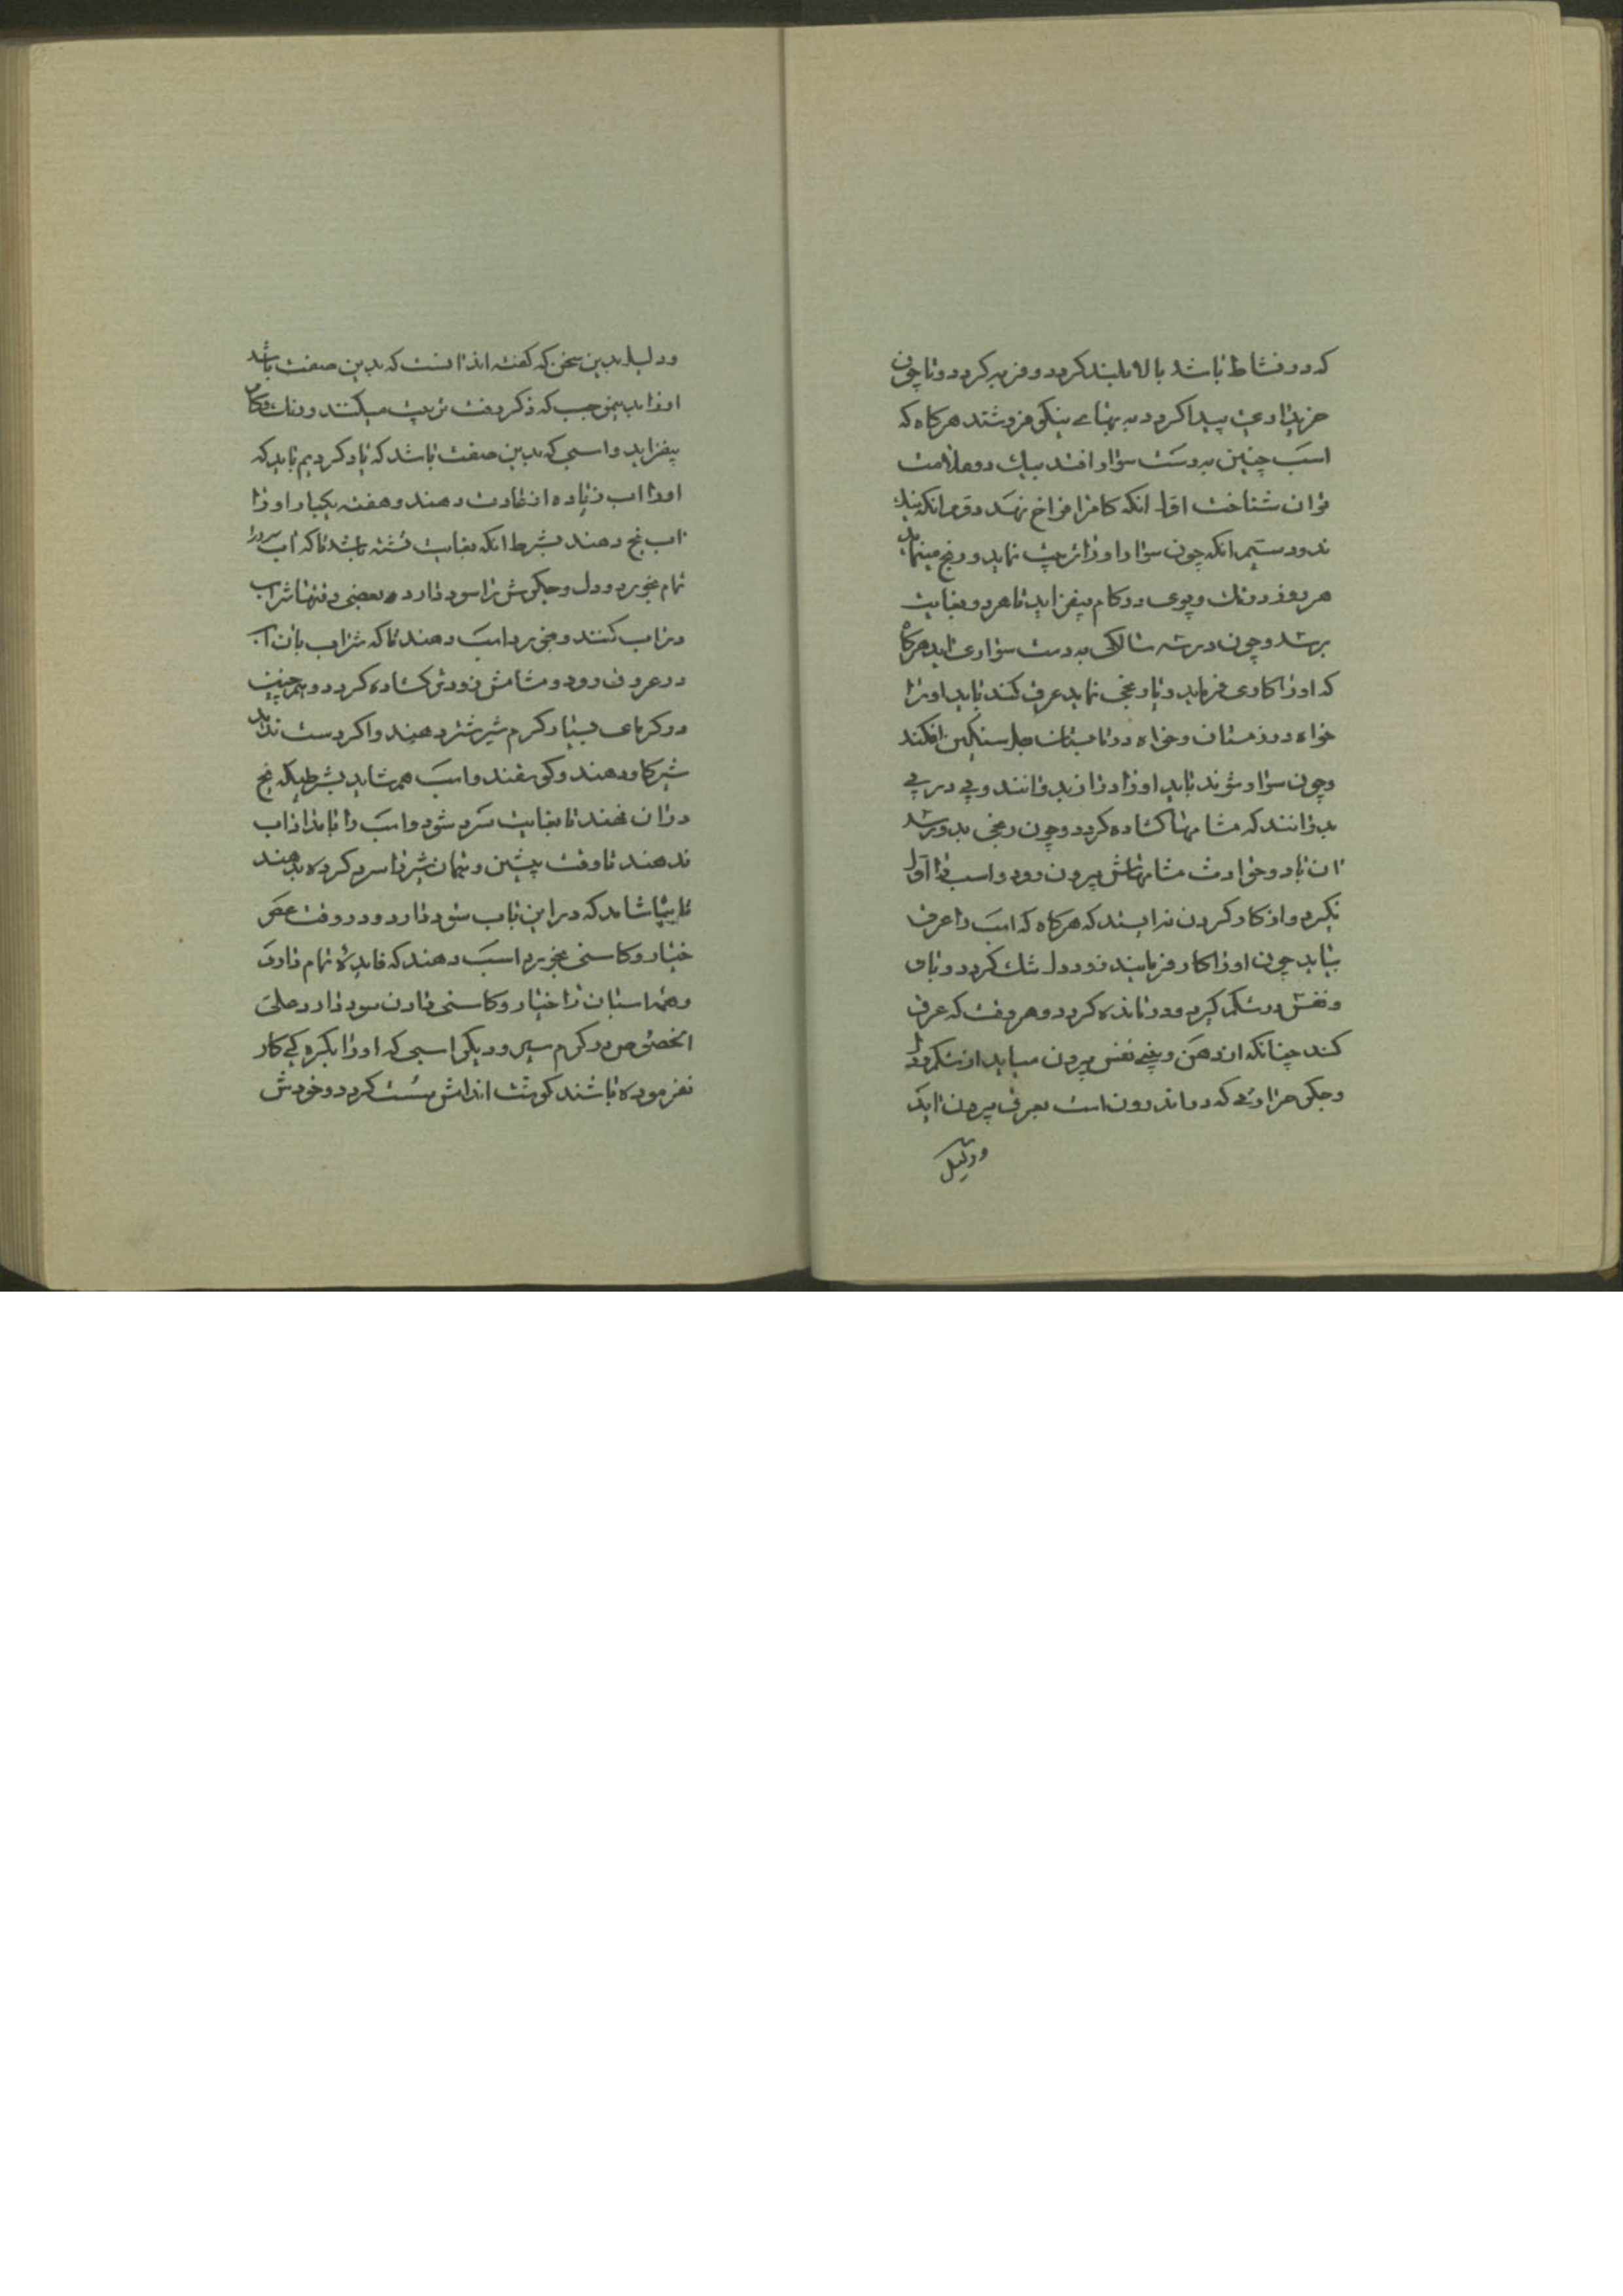 که در نشاط باشد بالا بلند کردد و فربه کردد و تا چون
خریداری پیدا کردد به بهای نیکو فروشند هرکاه که
اسب چنین بدست سوار افتد بیک دو علامت
توان شناخت اول انکه کامرا فراخ نهد دویم انکه نیک
ندود سیم انکه چون سوار او را تربیت نماید و رنج مینماید
هر روز در تک و پوی و در کام بیفزاید تا هر دو بغایت
برسد و چون در سه سالکی بدست سواری اید هرکاه
که او را کاری فرماید و یا رنجی نماید عرق کند باید او را
خواه در زمستان و خواه در تابستان جل سنکین افکند
و چون سوار شوند باید او را و را زیر رانند و پی در پی
بدوانند که مشامها کشاده کردد و چون رنجی بدو رسد
ان باد و حرارت مشامهاش بیرون رود و اسب را
نکیرد و از کار کردن نه ایستد که هرکاه که اسب را عرق
نیاید چون او را کار فرمایند زود دل تنک کردد و باد
و نفس در شکم کیرد و درمانده کردد و هر وقت که عرق
کند چنانکه از دهن و بینی نفس بیرون میاید از شکم و دل
و جکر حرارتی که در اندرون است بعرق بیرون اید
و دلیل
و دلیل بدین سخن که کفته اند انست که بدین صفت باشد
او را بدینموجب که ذکر رفت تربیت میکنند و در تک و کام
بیفزاید و اسبی که بدین صفت باشد که یاد کردیم باید که
او را اب زیاده از عادت دهند و هفته یکبار او را
اب یخ دهند بشرط انکه بغایت تشنه باشد تا که اب سرد را
تمام بخورد و دل و جکرش را سود دارد و بعضی وقتها شراب
در اب کنند و بخورد اسب دهند تا که شراب بان اب
در عروق رود و مشامش زودتر کشاده کردد و همچنین
در کرمای بسیار کرم شیر شتر دهند و اکر دست ندهد
شیر کاو دهند و کوسفند و اسب هم شاید بشرطیکه یخ
در ان نهند تا بغایت سرد شود و اسب را بامداد اب
ندهند تا وقت پیشین و همان شیر را سرد کرده بدهند
تا بیاشامد که در این باب سود دارد و در وقت عصر
خیار و کاسنی بخورد اسب دهند که فایده تمام دارد
و همه اسبان را خیار و کاسنی دادن سود دارد علی
الخصوص در کرم سیر و دیکر اسبی که او را بکره کی کار
نفرموده باشند کوشت اندامش سست کردد و خودش